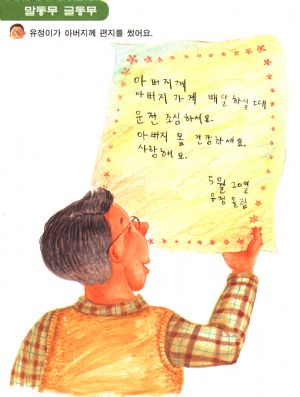 말동무 글동무
유정이가 아버지께 편지를 썼어요.
아버지께
아버지 가게 배달하실 때
운전 조심하세요.
아버지 몸 건강하세요.
사랑해요.
5월 20일
유정 올림